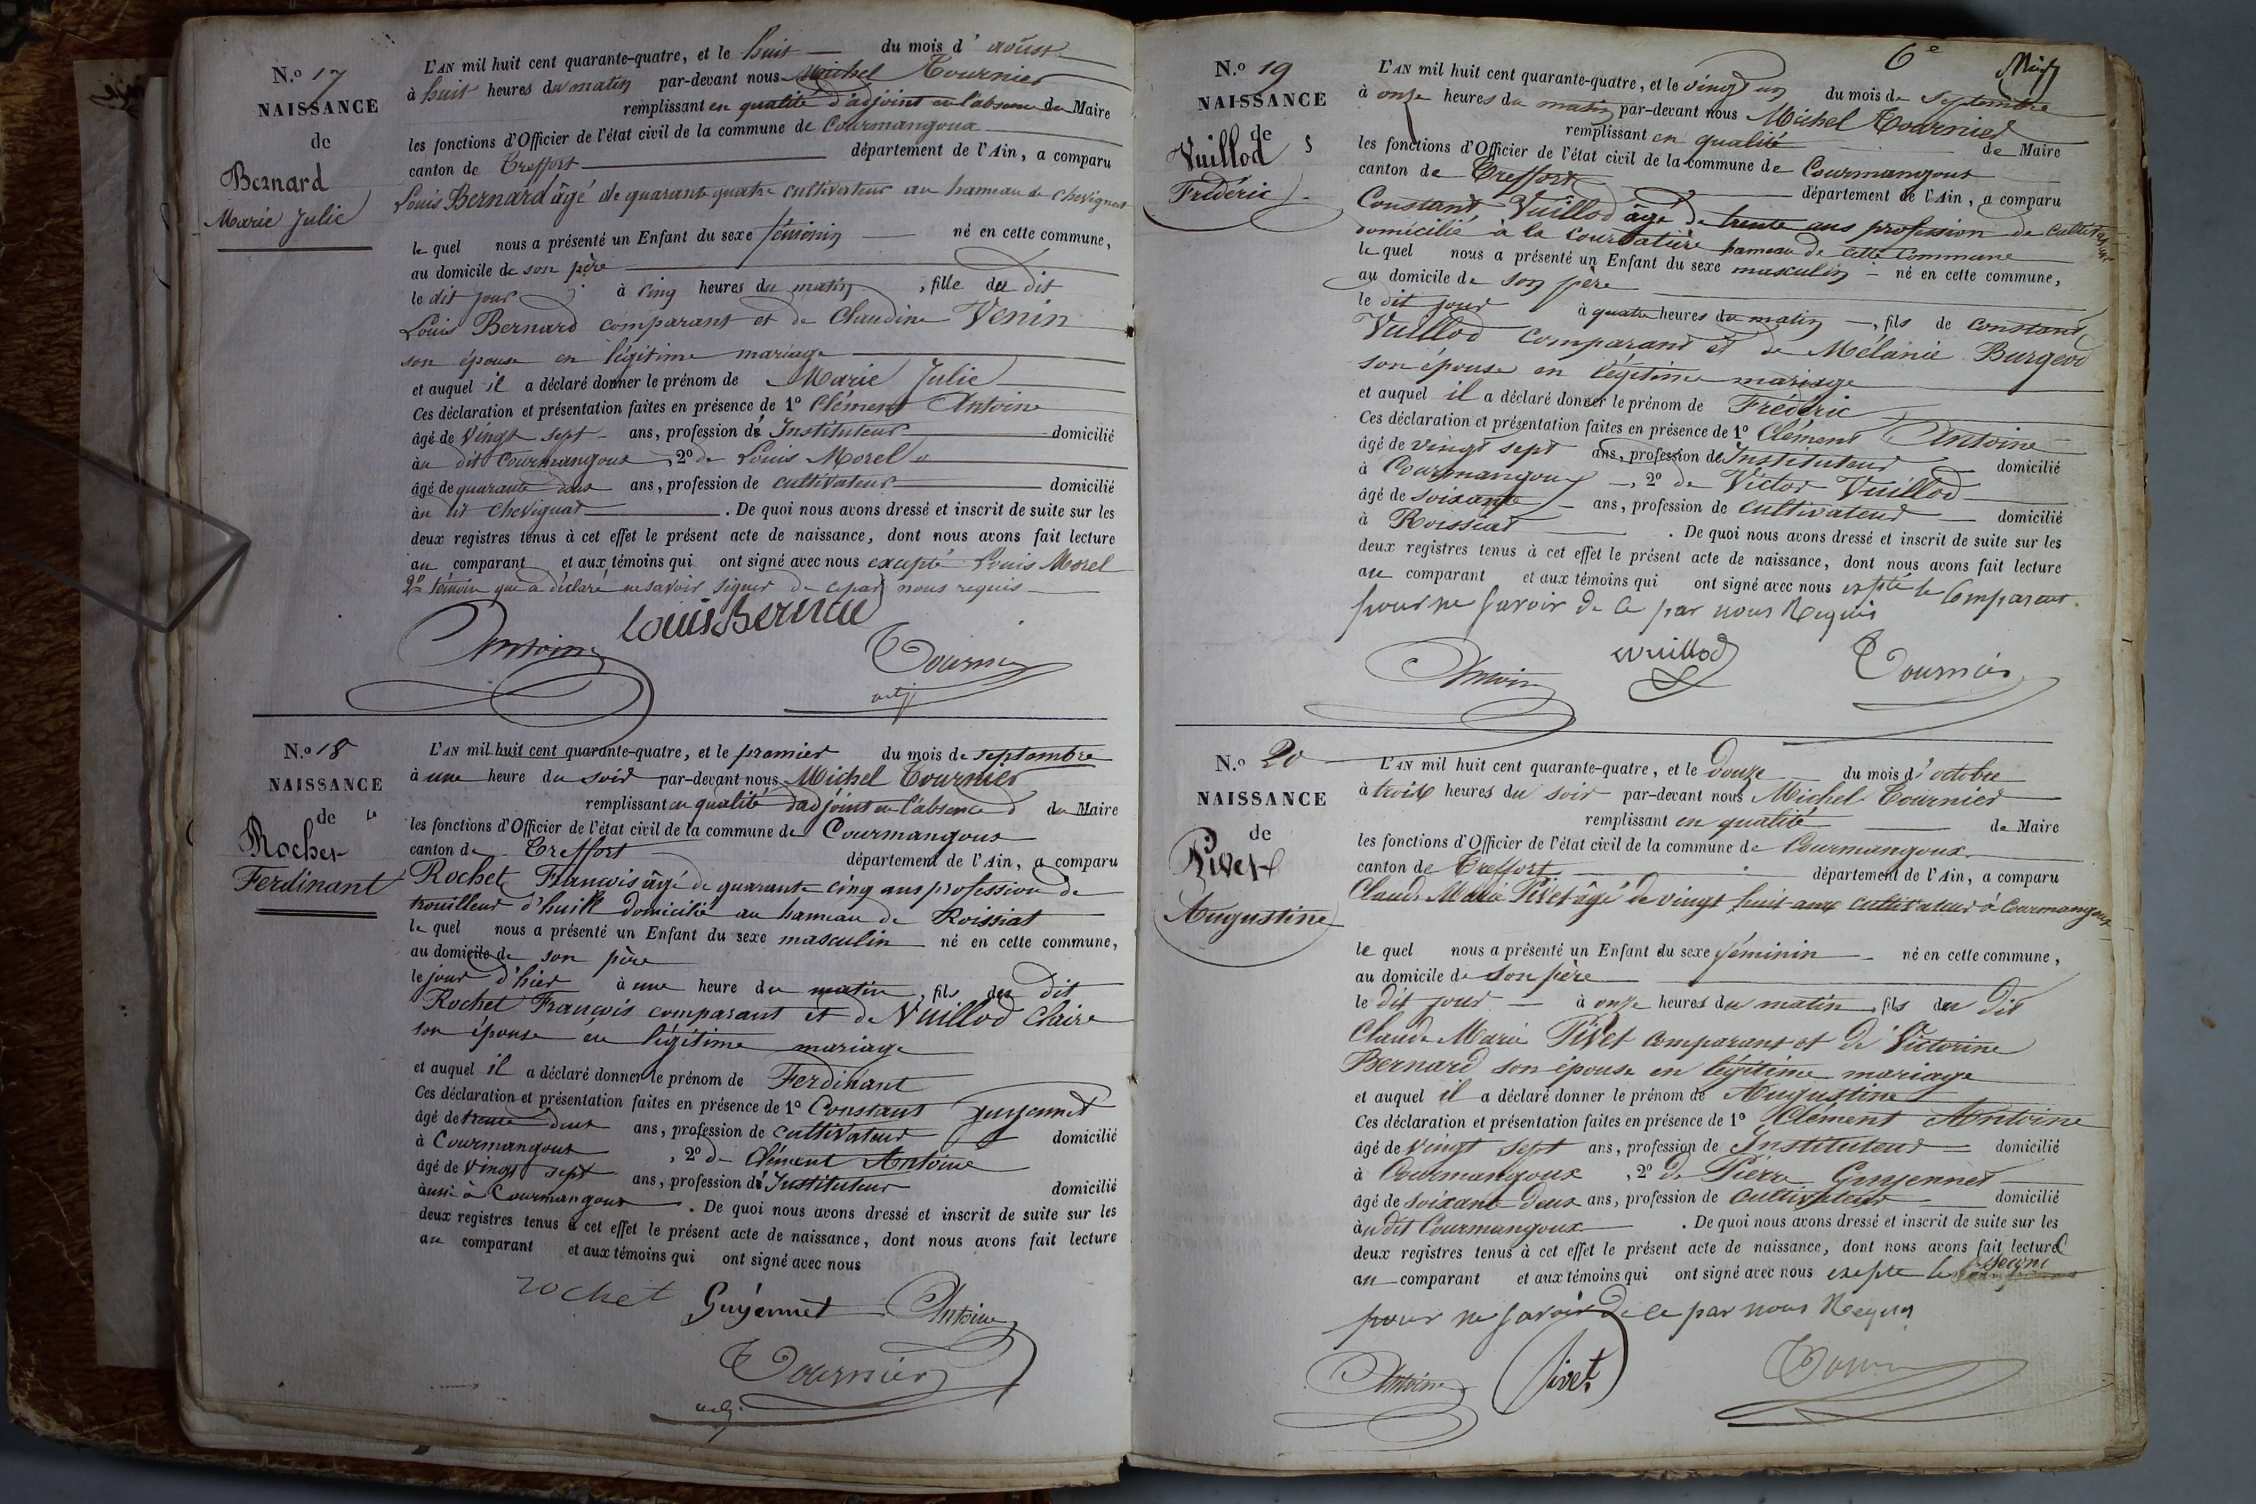 N.o 17
NAISSANCE
de
Bernard
Marie Julie
L'AN mil huit cent quarante-quatre, et le huit du mois d' août
à huit heures du matin par-devant nous Michel Tournier
remplissant en qualité d'adjoint en l'absence du Maire
les fonctions d'Officier de l'état civil de la commune de Courmangoux
canton de Treffort département de l'Ain, a comparu
Louis Bernard âgé de quarante quatre cultivateur au hameau de Chevignat
le quel nous a présenté un Enfant du sexe féminin né en cette commune,
au domicile de son père
le dit jour à cinq heures du matin, fille du dit
Louis Bernard comparant et de Claudine Venin
son épouse en légitime mariage
et auquel il a déclaré donner le prénom de Marie Julie
Ces déclaration et présentation faites en présence de 1o Clément Antoine
âgé de vingt sept ans, profession de Instituteur domicilié
au dit Courmangoux, 2o de Louis Morel
âgé de quarante deux ans, profession de cultivateur domicilié
au dit Chevignat. De quoi nous avons dressé et inscrit de suite sur les
deux registres tenus à cet effet le présent acte de naissance, dont nous avons fait lecture
au comparant et aux témoins qui ont signé avec nous excepté Louis Morel
2e témoin qui a déclaré ne savoir signer de ce par nous requis
Louis Bernard
Antoine Tournier
adj
N.o 18
NAISSANCE
de
Rochet
Ferdinant
L'AN mil huit cent quarante-quatre, et le premier du mois de septembre
à une heure du soir par-devant nous Michel Tournier
remplissant en qualité d'adjoint en l'absence du Maire
les fonctions d'Officier de l'état civil de la commune de Courmangoux
canton de Treffort département de l'Ain, a comparu
Rochet François âgé de quarante cinq ans profession de
trouilleur d'huile domicilié au hameau de Roissiat
le quel nous a présenté un Enfant du sexe masculin né en cette commune,
au domicile de son père
le jour d'hier à une heure du matin, fils du dit
Rochet François comparant et de Vuillod Claire
son épouse en légitime mariage
et auquel il a déclaré donner le prénom de Ferdinant
Ces déclaration et présentation faites en présence de 1o Constant Guyennet
âgé de trente deux ans, profession de cultivateur domicilié
à Courmangoux, 2o de Clément Antoine
âgé de vingt sept ans, profession de Instituteur domicilié
aussi à Courmangoux. De quoi nous avons dressé et inscrit de suite sur les
deux registres tenus à cet effet le présent acte de naissance, dont nous avons fait lecture
au comparant et aux témoins qui ont signé avec nous
rochet Guyennet Antoine
Tournier
adj.
6e
N.o 19
NAISSANCE
de
Vuillod
Frédéric
L'AN mil huit cent quarante-quatre, et le vingt un du mois de septembre
à onze heures du matin par-devant nous Michel Tournier
remplissant en qualité de Maire
les fonctions d'Officier de l'état civil de la commune de Courmangoux
canton de Treffort département de l'Ain, a comparu
Constant Vuillod âgé de trente ans profession de cultivateur
domicilié à la courbatière hameau de cette commune
le quel nous a présenté un Enfant du sexe masculin né en cette commune,
au domicile de son père
le dit jour à quatre heures du matin, fils de Constant
Vuillod comparant et de Mélanie Burgevod
son épouse en légitime mariage
et auquel il a déclaré donner le prénom de Frédéric
Ces déclaration et présentation faites en présence de 1o Clément Antoine
âgé de vingt sept ans, profession de Instituteur domicilié
à Courmangoux, 2o de Victor Vuillod
âgé de soixante ans, profession de cultivateur domicilié
à Roissiat. De quoi nous avons dressé et inscrit de suite sur les
deux registres tenus à cet effet le présent acte de naissance, dont nous avons fait lecture
au comparant et aux témoins qui ont signé avec nous expté le Comparant
pour ne savoir de ce par nous Requis
Antoine vuillod Tournier
N.o 20
NAISSANCE
de
Pivet
Augustine
L'AN mil huit cent quarante-quatre, et le douze du mois d'octobre
à trois heures du soir par-devant nous Michel Tournier
remplissant en qualité de Maire
les fonctions d'Officier de l'état civil de la commune de Courmangoux
canton de Treffort département de l'Ain, a comparu
Claude Marie Pivet âgé de vingt huit ans cultivateur à Courmangoux
le quel nous a présenté un Enfant du sexe féminin né en cette commune,
au domicile de son père
le dit jour à onze heures du matin, fils du dit
Claude Marie Pivet comparant et de Victorine
Bernard son épouse en légitime mariage
et auquel il a déclaré donner le prénom de Augustine
Ces déclaration et présentation faites en présence de 1o Clément Antoine
âgé de vingt sept ans, profession de Instituteur domicilié
à Courmangoux, 2o de Pierre Guyennet
âgé de soixante deux ans, profession de cultivateur domicilié
au dit Courmangoux. De quoi nous avons dressé et inscrit de suite sur les
deux registres tenus à cet effet le présent acte de naissance, dont nous avons fait lecture
au comparant et aux témoins qui ont signé avec nous exepte le second
pour ne savoir de ce par nous Requis
Antoine Pivet Tournier